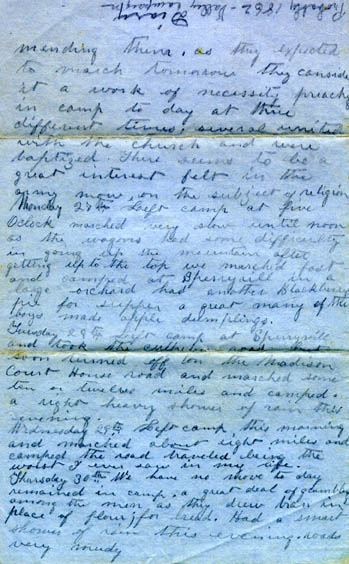 Probably 1862 - Valley Campaign
Diary
mending them. as they expected
to march tomorrow they conside
it a work of necessity preachg
in camp to day at three
different times; several united
with the church and were
baptized. There seems to be a
great interest felt in the
army now, on the subject of religion
Monday 27th Left camp at five
Oclock marched very slow until noon
as the wagons had some difficulty
in going up the mountain after
getting up to the top we marched fast
and camped at Sperryvill in a
large orchard had another Blackberry
pie for supper a great many of the
boys made apple dumplings.
Tuesday 28th Left camp at Sperryville
and took the road
soon turned off on the Madison
Court House road and marched some
ten or twelve miles and camped.
a right heavy shower of rain this
evening.
Wednesday 29th Left camp this morning
and marched about eight miles and
camped the road traveled being the
worst I ever saw in my life.
Thursday 30th We have no move to day
remained in camp. a great deal of
among the men as they drew in
place of flour, for bread. Had a smart
shower of rain this evening. roads
very muddy